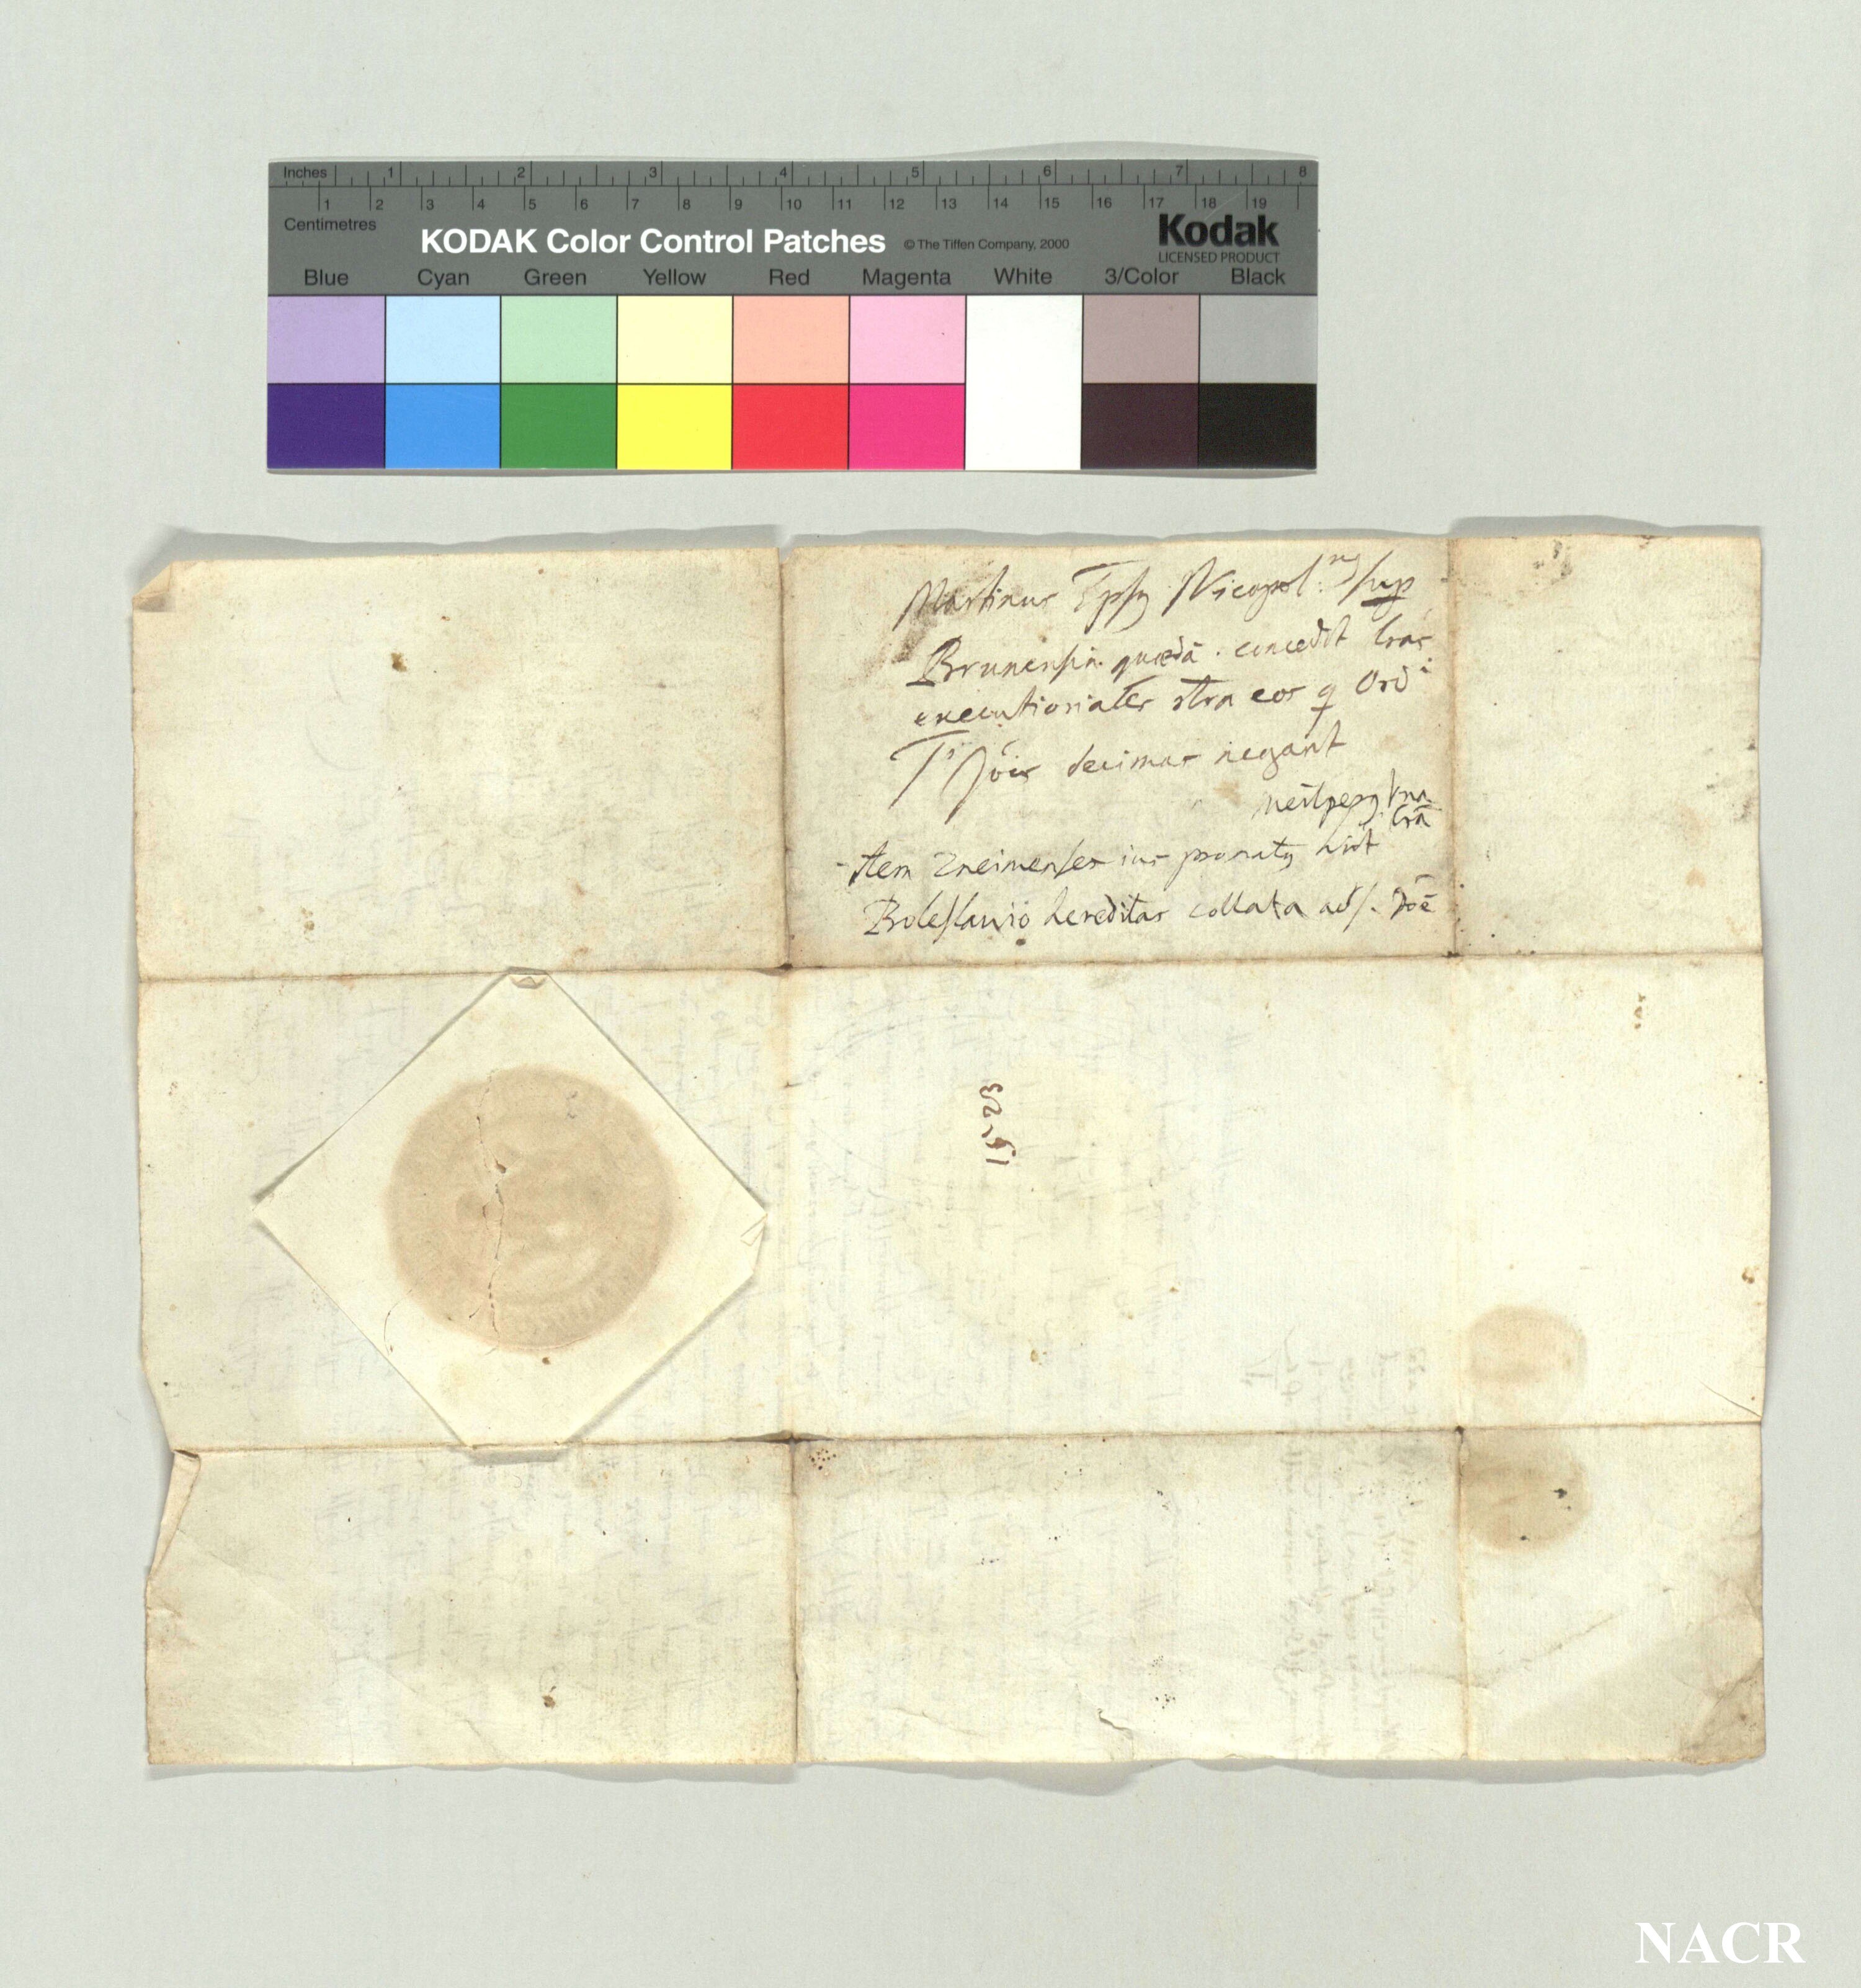 Inches 1 2 3 4 5 6 7 8
1 2 3 4 5 6 7 8 9 10 11 12 13 14 15 16 17 18 19
Centimetres
KODAK Color Control Patches © The Tiffen Company, 2000 Kodak
LICENSED PRODUCT
Blue Cyan Green Yellow Red Magenta White 3/Color Black
Martinus Epſꝯ Nicopol: ſup
Brunenſin. quedā. concedit lrās
executoriales ꝯtra eos q Ord
Sⁱ Jōis decimas negant
una
lrā
Item Zneimenſes ius pronatꝯ
Boleſlauio hereditas collata ad ſ. Joē
1523
NACR